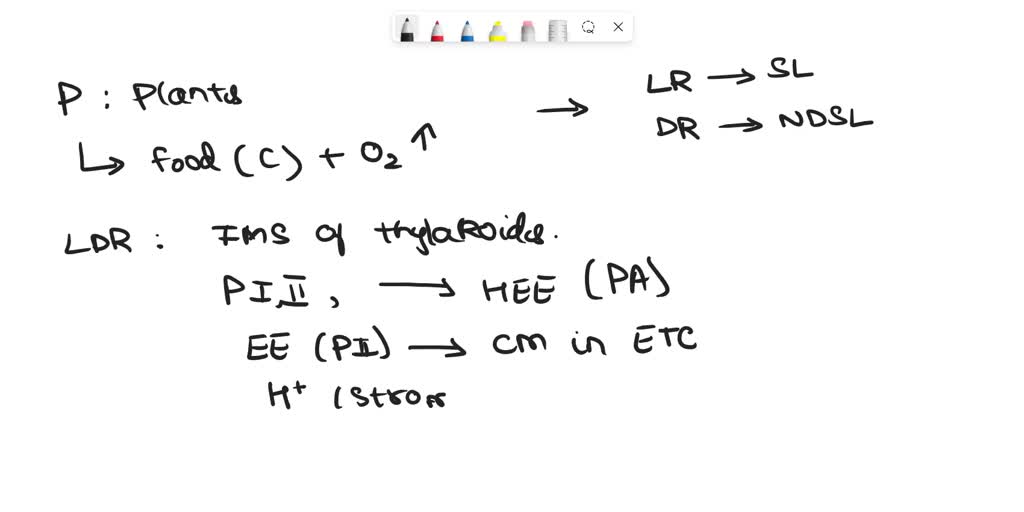 P : Plants
↳ food (C) + O₂ ↑
→ LR → SL
DR → NDSL
LDR : IMS of thylakoids.
PI, II, → HEE (PA)
EE (PII) → CM in ETC
H⁺ (Strom